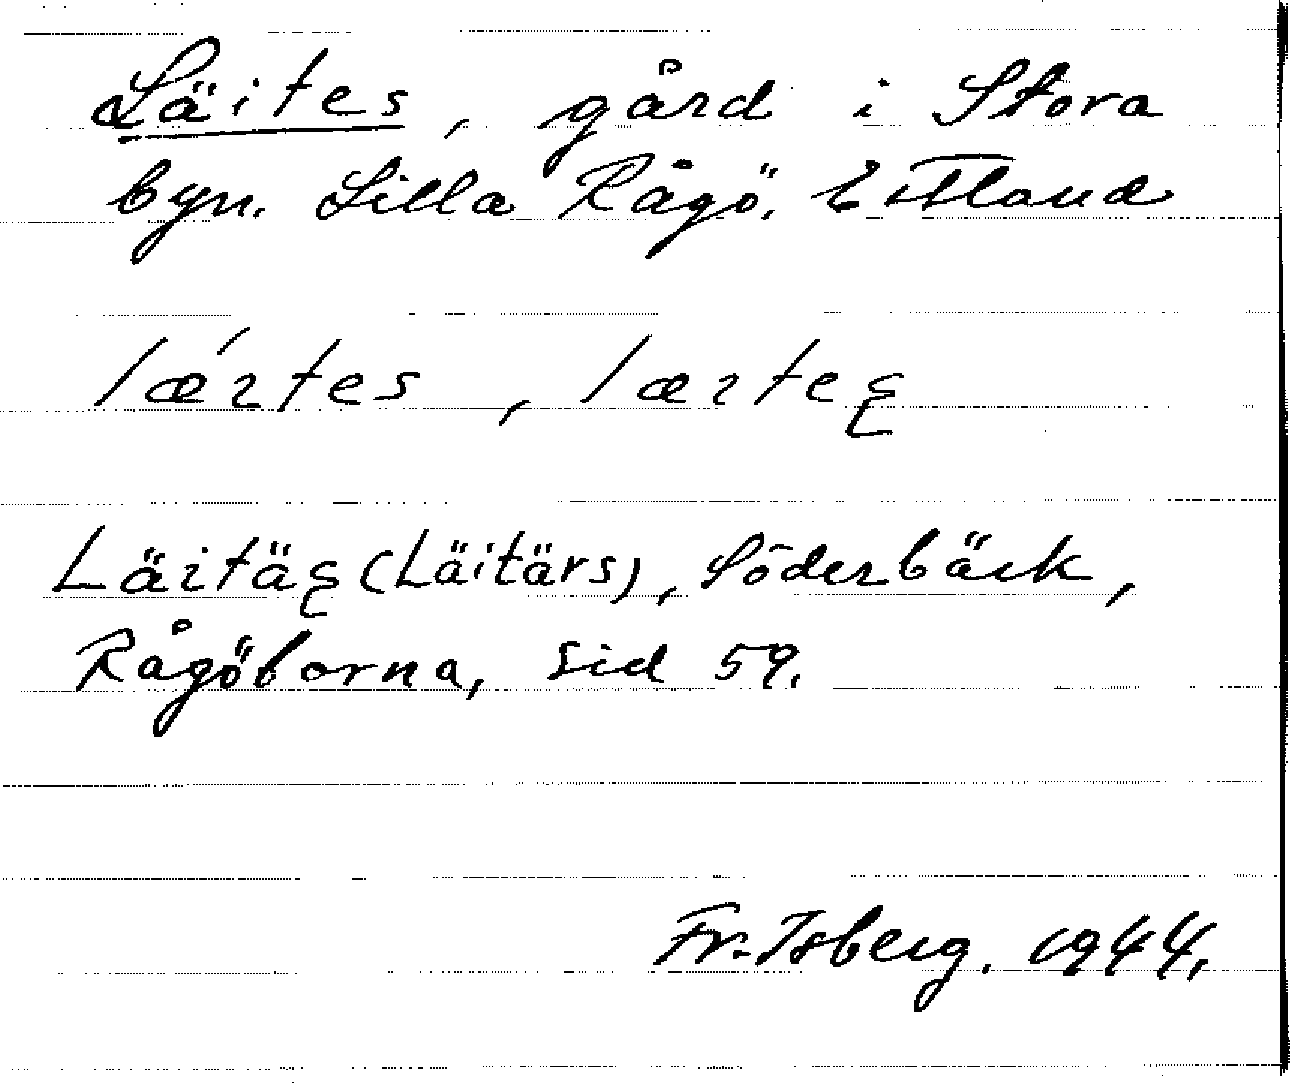 Läites, gård i Stora
byn. Lilla Rågö. Estland
lǽıtes, læıteʂ
Läıtäʂ (Läitärs), Söderbäck,
Rågöborna, sid 59.
Fr. Isberg. 1944.